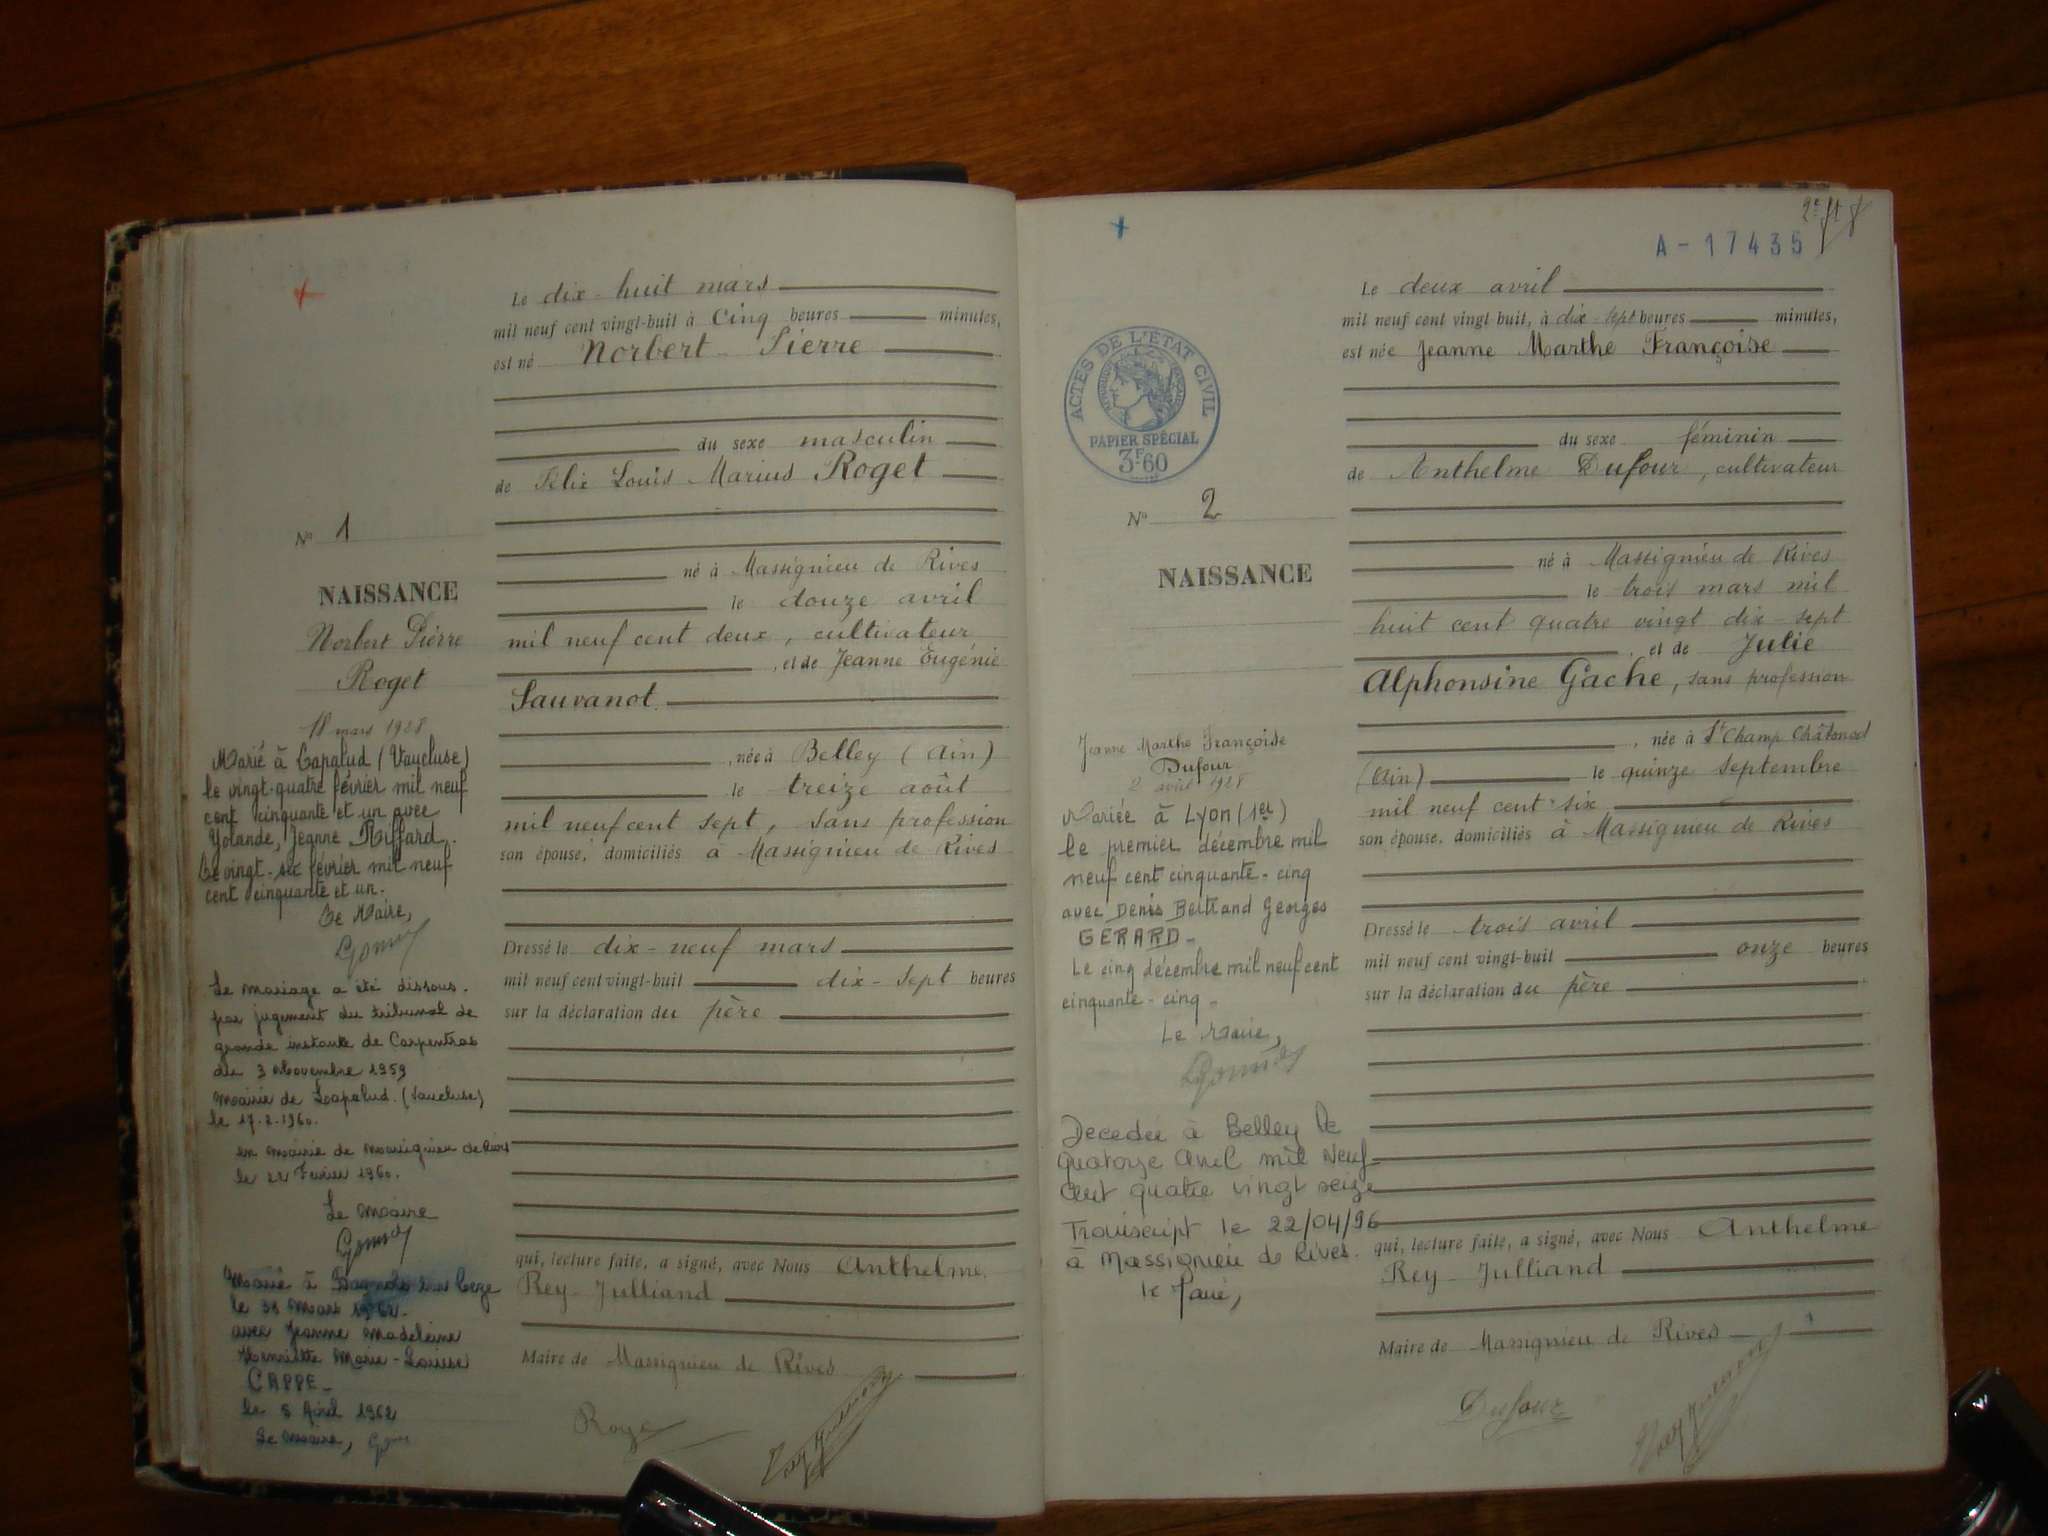 Le dix-huit mars
mil neuf cent vingt-huit à Cinq heures minutes,
est né Norbert Pierre
du sexe masculin
de Félix Louis Marius Roget
né à Massignieu de Rives
le douze avril
mil neuf cent deux, cultivateur
, et de Jeanne Eugénie
Sauvanot.
, née à Belley (Ain)
le treize août
mil neuf cent sept, sans profession
son épouse, domiciliés à Massignieu de Rives
Dressé le dix-neuf mars
mil neuf cent vingt-huit dix-sept heures
sur la déclaration du père
qui, lecture faite, a signé, avec Nous Anthelme
Rey-Julliand
Maire de Massignieu de Rives
Roget
No 1
NAISSANCE
Norbert Pierre
Roget
18 mars 1928
Marié à Lapalud (Vaucluse)
le vingt-quatre février mil neuf
cent cinquante et un avec
Yolande, Jeanne Riffard.
Le vingt-six février mil neuf
cent cinquante et un.
Le Maire,
Le mariage a été dissous
par jugement du tribunal de
grande instante de Carpentras
du 3 Novembre 1959
Mairie de Lapalud. (Vaucluse)
le 17.2.1960.
en mairie de Massignieu de Rives
le 22 Février 1960.
Le Maire
Marié à Bagnols sur Ceze
le 31 Mars 1962.
avec Jeanne Madeleine
Henriette Marie-Louise
CAPPE
le 5 Avril 1962
Le Maire,
A-17435
ACTES DE L'ÉTAT CIVIL
PAPIER SPÉCIAL
3F60
Le deux avril
mil neuf cent vingt-huit, à dix-sept heures minutes,
est née Jeanne Marthe Françoise
du sexe féminin
de Anthelme Dufour, cultivateur
né à Massignieu de Rives
le trois mars mil
huit cent quatre vingt dix-sept
, et de Julie
Alphonsine Gache, sans profession
, née à St Champ Châtonod
(Ain) le quinze septembre
mil neuf cent six
son épouse, domiciliés à Massignieu de Rives
Dressé le trois avril
mil neuf cent vingt-huit onze heures
sur la déclaration du père
qui, lecture faite, a signé, avec Nous Anthelme
Rey-Julliand
Maire de Massignieu de Rives
Dufour
No 2
NAISSANCE
Jeanne Marthe Françoise
Dufour
2 avril 1928
Mariée à Lyon (1er)
le premier décembre mil
neuf cent cinquante-cinq
avec Denis Bertrand Georges
GERARD-
Le cinq décembre mil neuf cent
cinquante-cinq-
Le Maire,
Decedée à Belley le
quatorze Avril mil Neuf
Cent quatre vingt seize
Transcript le 22/04/96
à Massignieu de Rives.
le Maire,